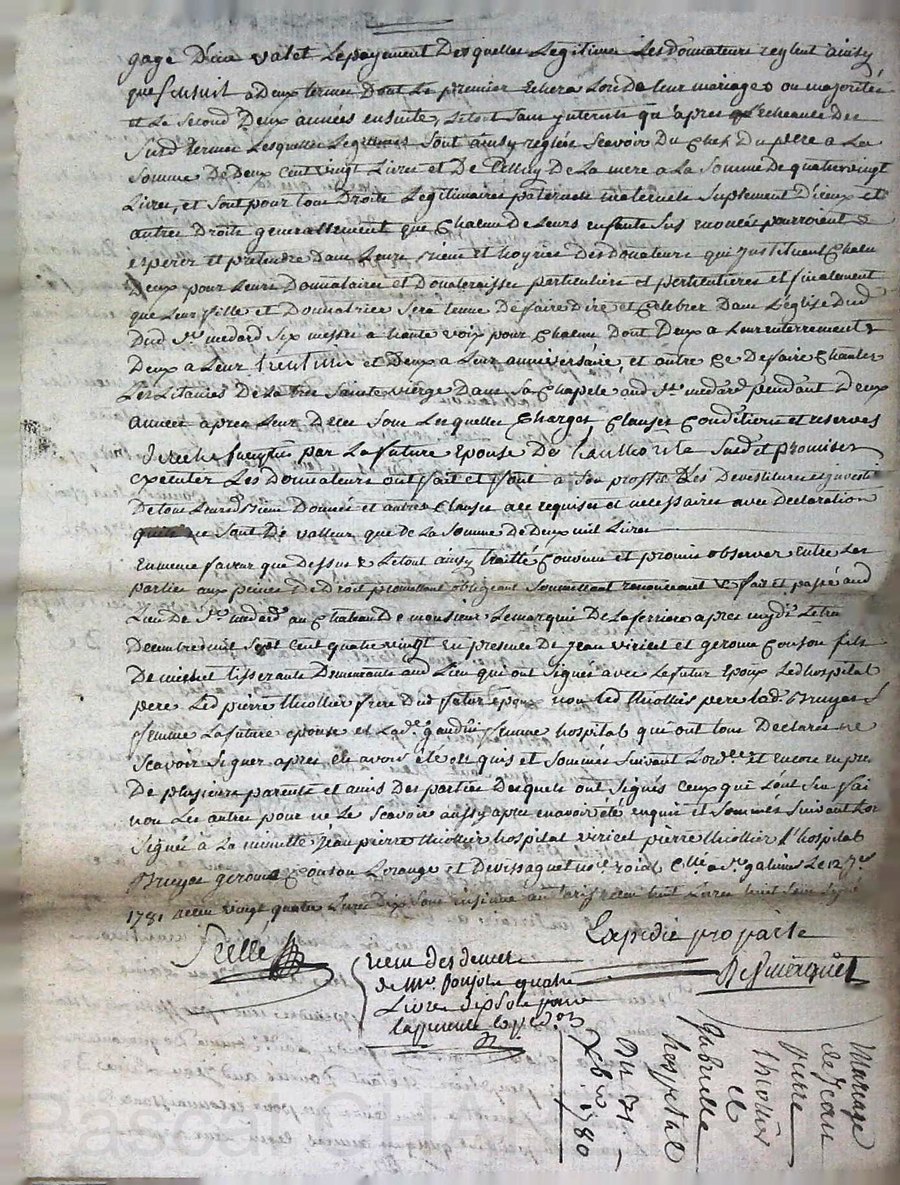 gage D'un valet Le payement Desquelles Legitimes Les donnateurs reglent ainsy
que sensuit a Deux termes Dont Le premier Echera Lors De leur mariage ou majorité
et Le Second Deux années ensuite, Le tout Sans interests qu'apres L'echeance Des
Susd termes Lesquelles Legitimes Sont ainsy reglés Scavoir Du Chef Du pere a La
Somme De Deux Cent vingt Livres et De Celluy De La mere a La Somme De quatre vingt
Livres, et Sont pour tous Droits Legitimaires paternels maternels Suplement D'iceux et
autres Droits generallement que Chacun De Leurs enfants Sus enoncés pourroient
esperer et pretendre Dans Leurs biens et hoyries Des donateurs qui Instituent Chacun
Deux pour Leurs Donnataires et Donateraisses particuliers et particulieres et finalement
que Leur fille et Donnatrice Sera tenue De faire Dire et Celebrer Dans L'eglise Dud
Dud St medard Six messes a haute voix pour Chacun Dont Deux a Leur enterrement
Deux a Leur trentaine et Deux a Leur anniversaire, et outre Ce De faire Chanter
Les Litanies De La tres Sainte vierge Dans Sa Chapele aud St medard pendant Deux
années apres Leur Deces Sous Lesquelles Charges Clauses Conditions et reserves
par La future Epouse De L'authorité Susd et promises
executer Les Donnateurs ont fait et font a Son proffit Les Devestitures investi
De tous Leursd biens Donnés et autres Clauses a ce requises et necessaires avec Declaration
ne Sont De valleur que de La Somme De Deux mil Livres
En meme faveur que Dessus Le tout ainsy traitté Convenu et promis observer Entre Les
parties aux peines De Droit promettant obligeant Soumettant renonceant fait et passé aud
Lieu De St medard au Chateau De monsieur Le marquis De La ferriere apres midy Le
Decembre mil Sept cent quatre vingt en presence De Jean viricel et gerome Couson fils
De michel tisserants Demeurants aud Lieu qui ont Signés avec Le futur Epoux Led hospital
pere Led pierre thiollier frere Dud futur epoux non Led thiollier pere Lad. Bruyas
femme La future epouse et Lad. gaudin femme hospital qui ont tous Declarés ne
Scavoir Signer apres en avoir été enquis et Sommés Suivant L'ordce et encore en pre
De plusieurs parents et amis Des parties Desquels ont Signés Ceux qui L'ont Su fai
non Les autres pour ne Le Scavoir aussy apres en avoir été enquis et Sommés Suivant L'or
Signés à La minutte Jean pierre thiollier hospital viricel pierre thiollier L'hospital
Bruyas gerome Couson Lorange et Devissaguet nre roial Clle a St galmier Le 12 Jer
1781 vingt quatre Livres Dix Sols Livres huit Sols Signé
Expedié pro parte
receu des deniers
de Mr quatre
Livres dix Sols pour
la presente expedon
Mariage
de Jean
pierre
thiollier
et
Gabrielle
hospital
Du 31
Xbre 1780